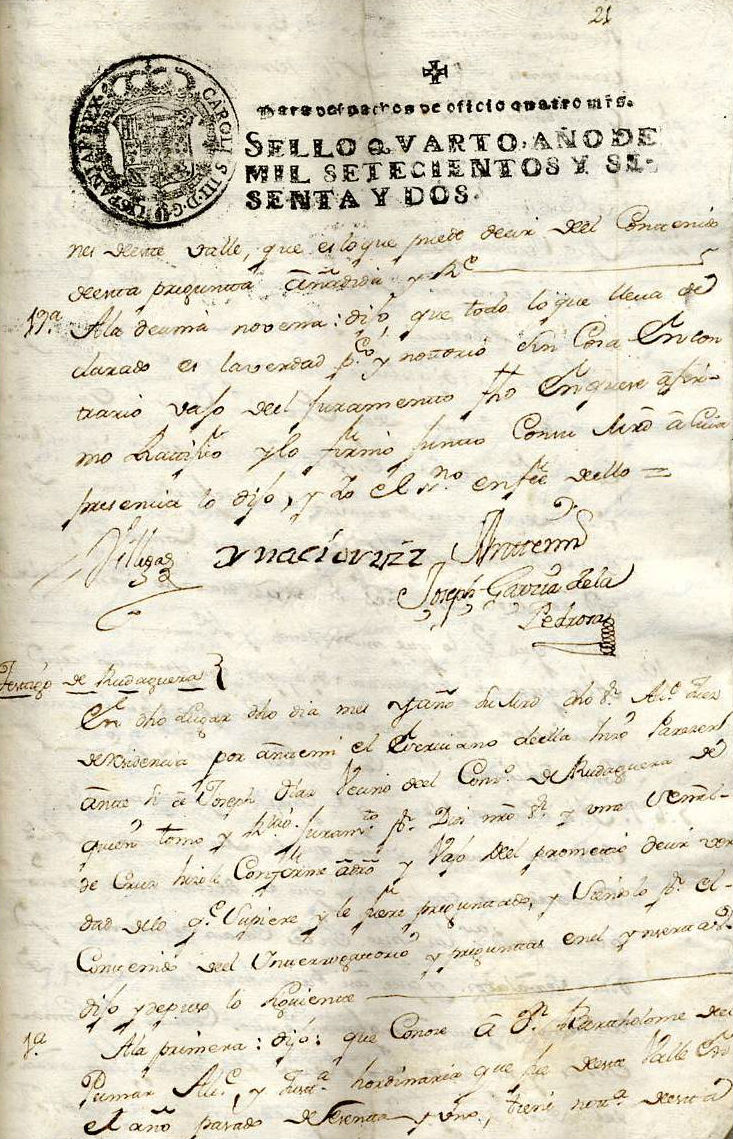 21
CAROLUS III D G HISPANIAR REX
Para despachos de oficio quatro mrs.
SELLO QVARTO, AÑO DE
MIL SETECIENTOS Y SE-
SENTA Y DOS.
nes deste valle, que es lo que puede decir del Contenido
desta pregunta añadida y Re
19.ª A la decima novena: dijo, que todo lo que lleva de
clarado es la verdad pco y notorio sin Cosa En con
trario vajo del Juramento fho En que se afir-
mo Ratifico y lo firmo Junto Con su Mrd a Cuia
presencia lo dijo, y Yo el ssno en fee dello =
Villegas Ynacio ruiz Antemi
Joseph Garcia de la
Pedrosa
Testigo de Rudaguera
En dho Lugar dho dia mes y año su Mrd dho Sr Alce Juez
de Residencia por antemi el Escriuano della hizo Parezer
ante si a Joseph Diaz Vecino del Conzo de Rudaguera de
quien tomo y Recivio Juramto pr Dios nro Sr y una señal
de Cruz hizole Conforme a dro y vajo del prometio decir ver
dad de lo qe supiere y le fuere preguntado, y siendolo pr el
Contenido del Ynterrogatorio y preguntas en el ynsertas
dijo y depuso lo siguiente
1.ª A la primera: dijo: que Conoce a Dn Bartholome del
Pumar Alce, y Justa hordinaria que fue deste Valle En
el año pasado de sesenta y uno, tiene nota desta